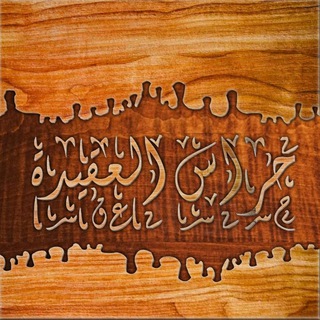 حراس العقيدة